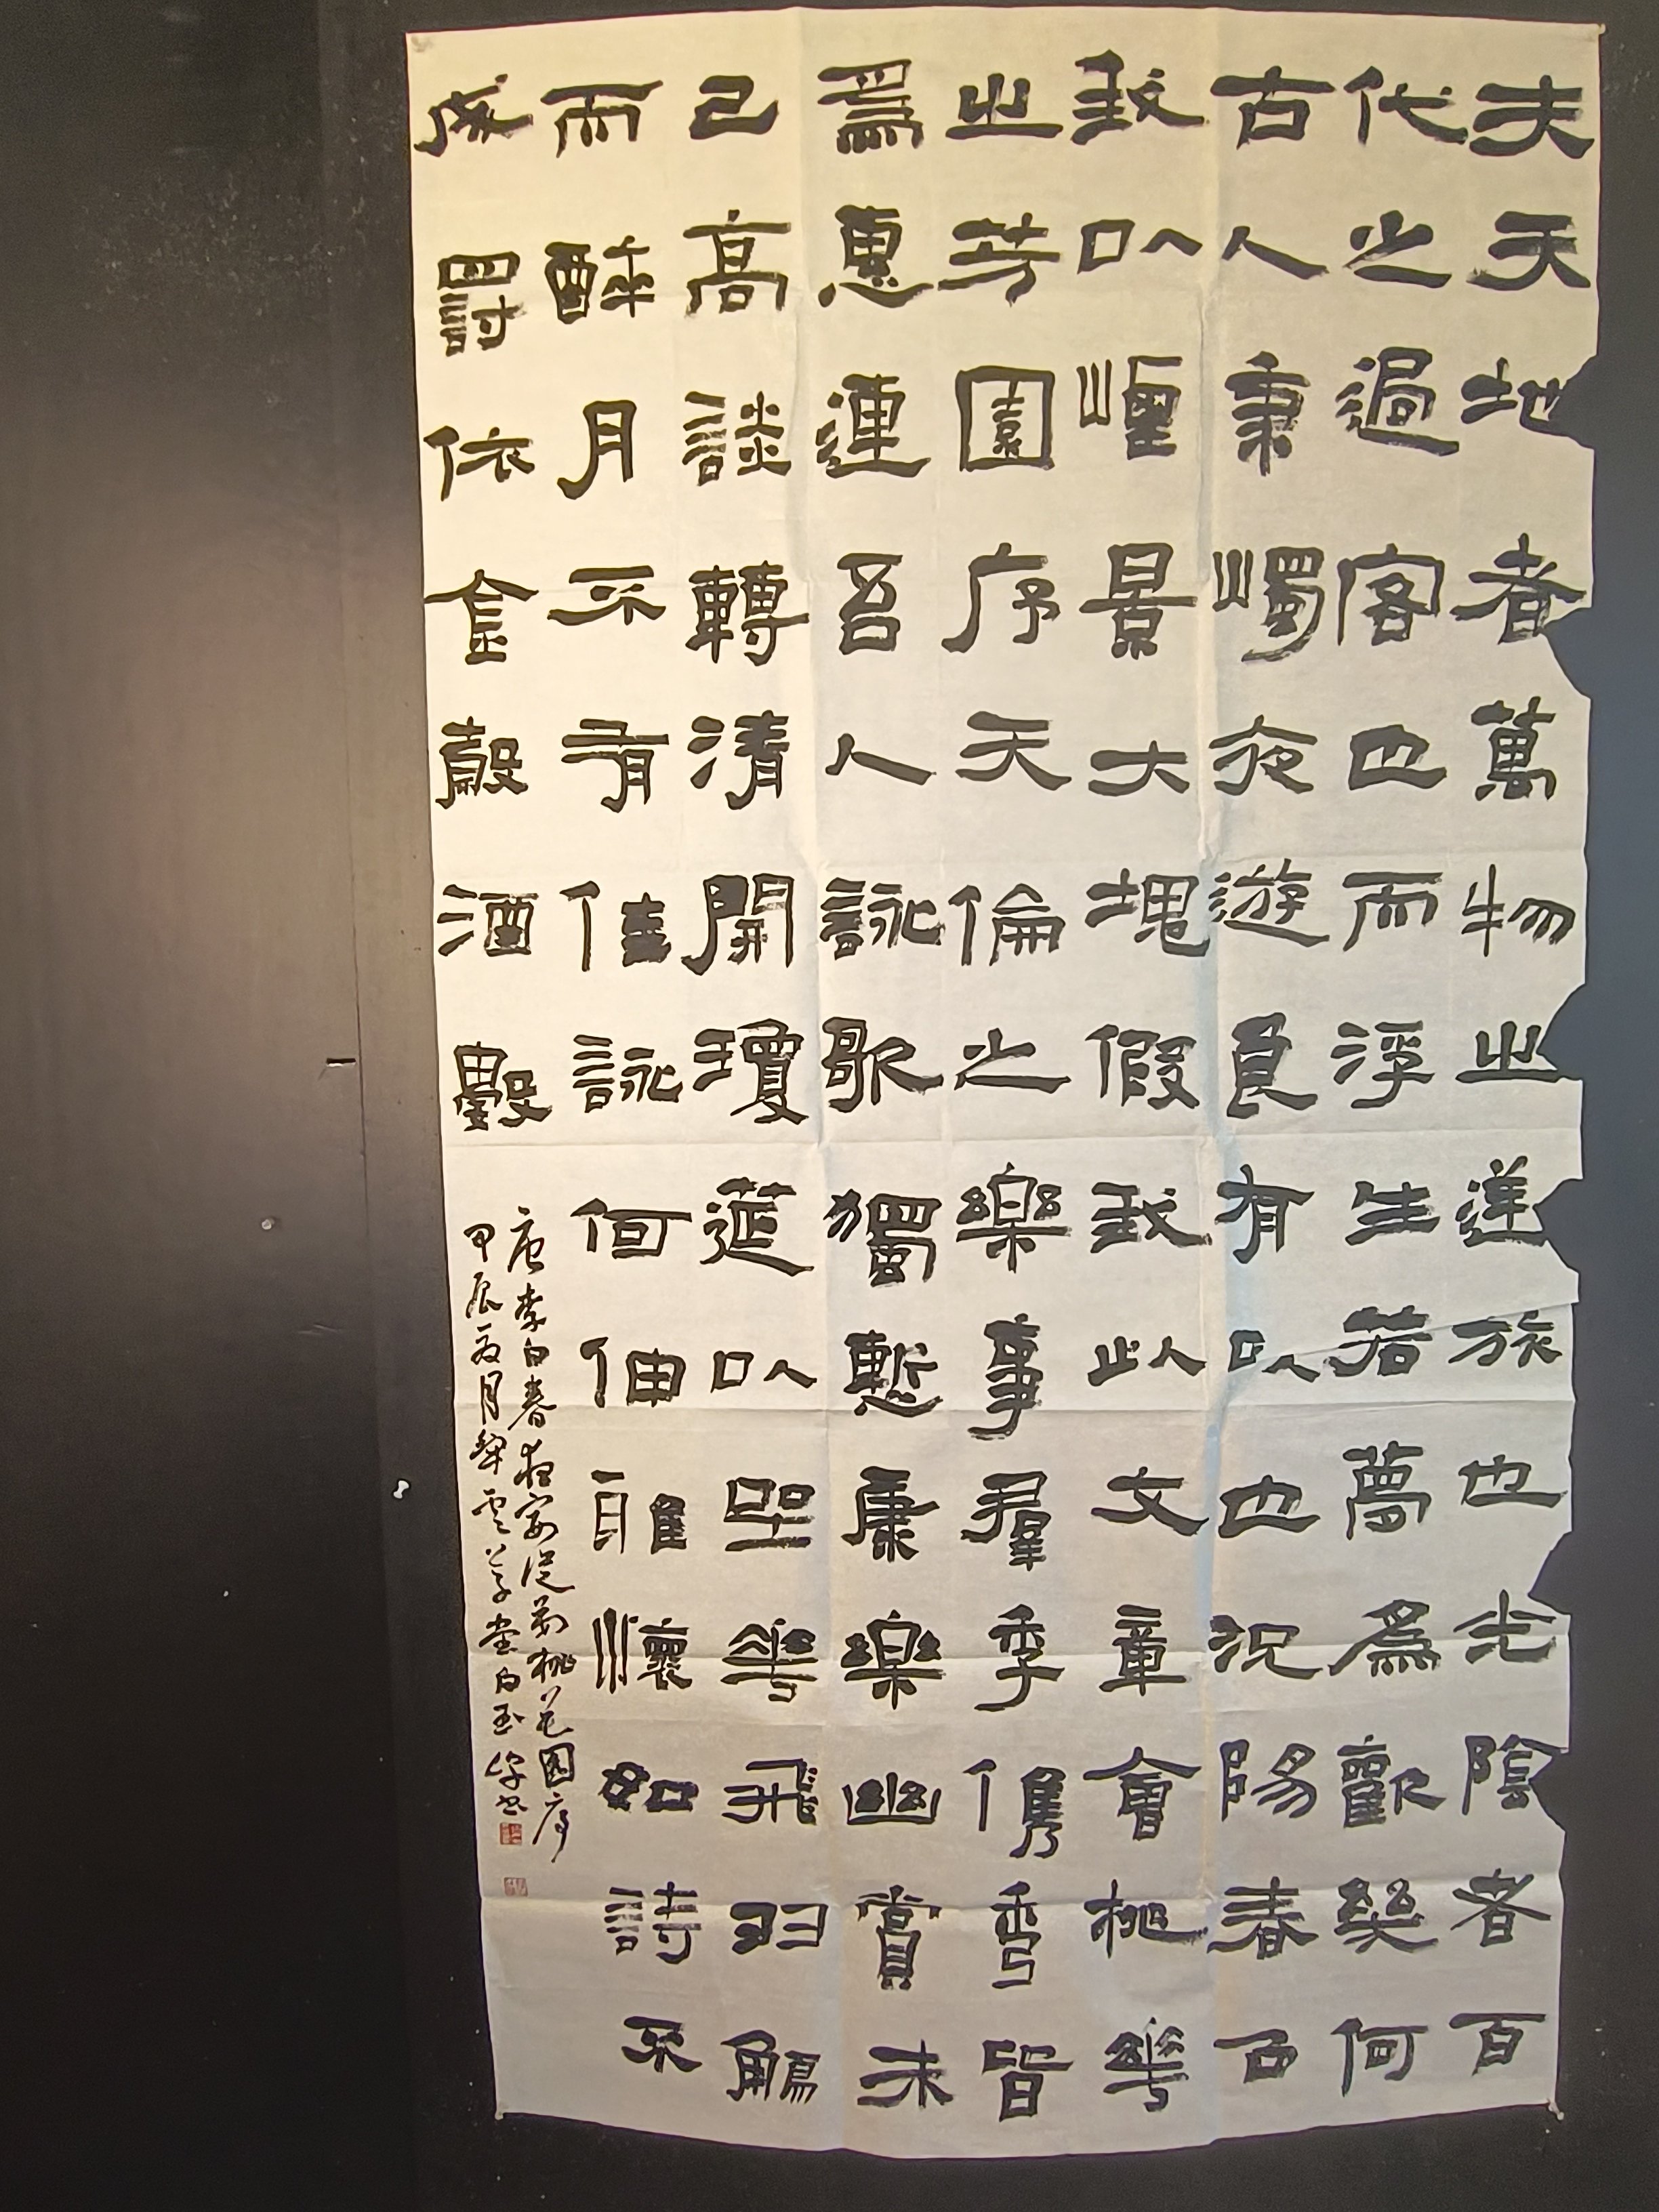 夫天地者萬物之逆旅也光陰者百
代之過客也而浮生若夢爲歡幾何
古人秉燭夜遊良有以也況陽春召
我以煙景大塊假我以文章會桃華
之芳園序天倫之樂事羣季儁秀皆
爲惠連吾人詠歌獨慙康樂幽賞未
已高談轉清開瓊筵以坐華飛羽觴
而醉月不有佳詠何伸雅懷如詩不
成罰依金穀酒數
唐李白春夜宴從弟桃花園序
甲辰月犂雲草堂白玉书